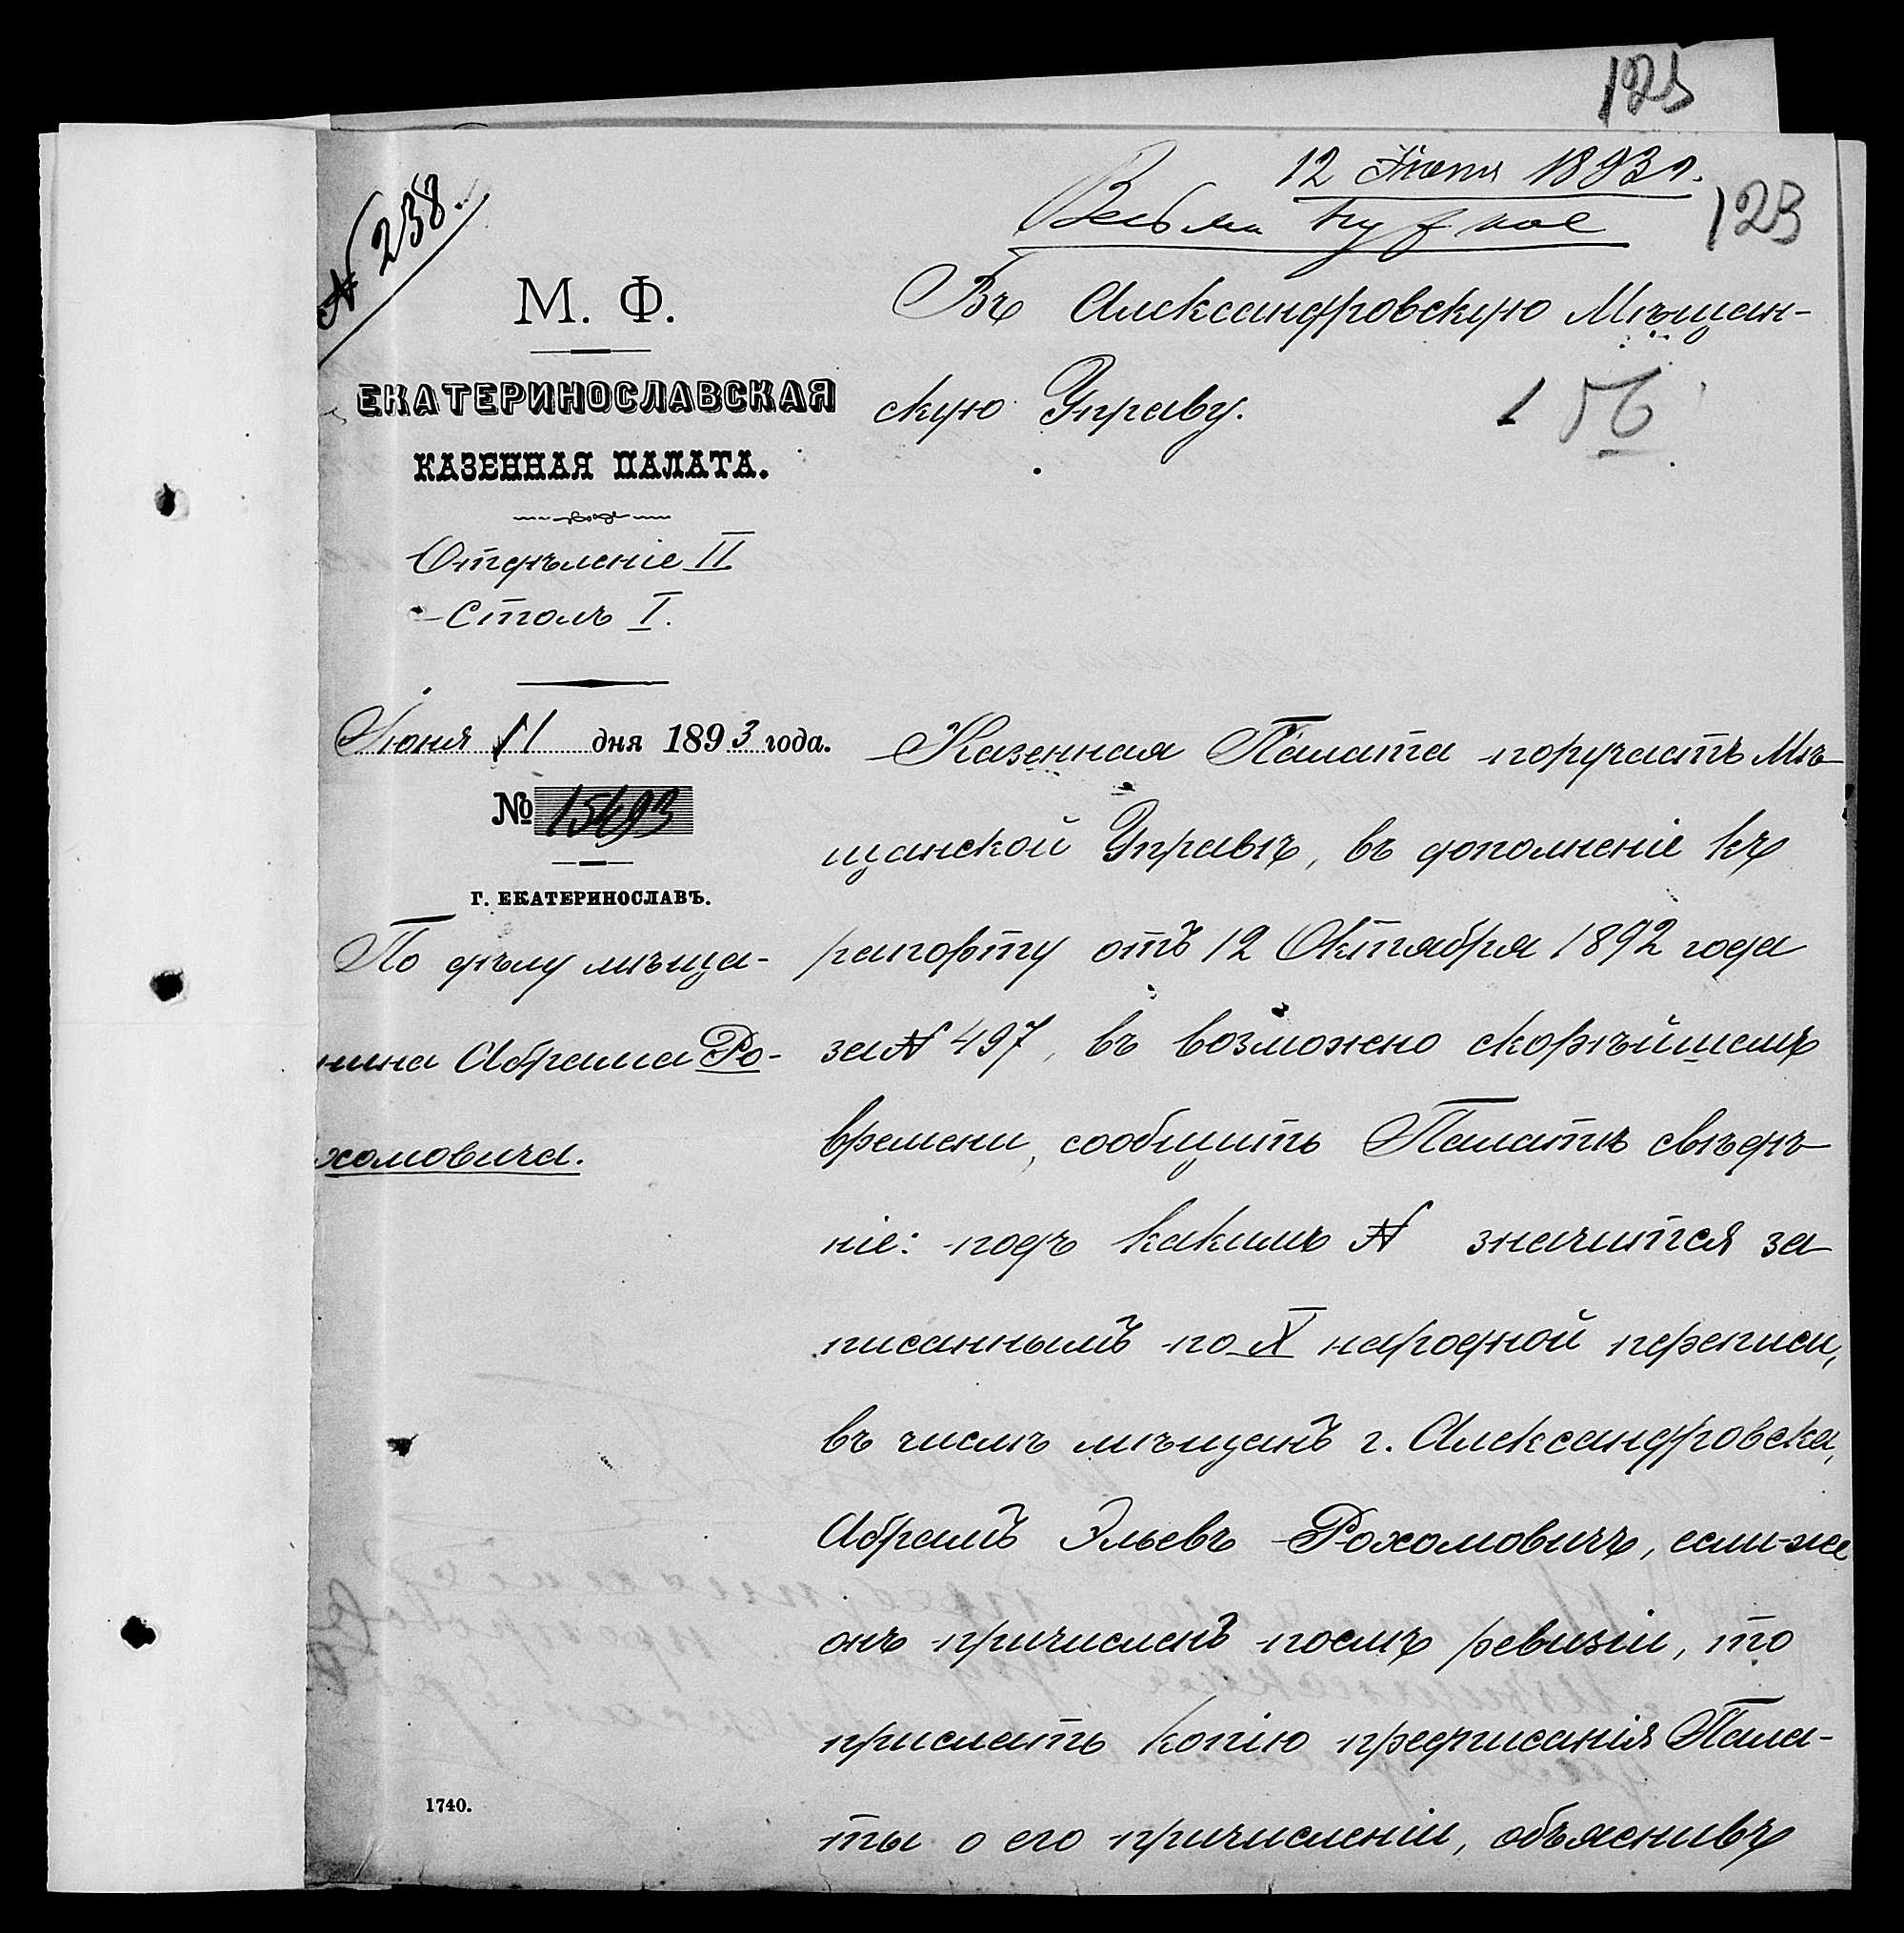 123
12 Іюня 1893 г.
Весьма нужное
123
№ 238.
М. Ф.
ЕКАТЕРИНОСЛАВСКАЯ
КАЗЕННАЯ ПАЛАТА.
Отдѣленіе II
Столъ I.
Іюня 11 дня 1893 года.
№ 15493
Г. ЕКАТЕРИНОСЛАВЪ.
По дѣлу мѣща-
нина Абрама Ро-
хомовича.
1740.
Въ Александровскую Мѣщан-
скую Управу.
156
Казенная Палата поручаетъ Мѣ-
щанской Управѣ, въ дополненіе къ
рапорту отъ 12 Октября 1892 года
за № 497, въ возможно скорѣйшемъ
времени, сообщить Палатѣ свѣдѣ-
ніе: подъ какимъ № значится за-
писаннымъ по X народной переписи,
въ числѣ мѣщанъ г. Александровска,
Абрамъ Эльевъ Рохомовичъ, если-же
онъ причисленъ послѣ ревизіи, то
прислать копію предписанія Пала-
ты о его причисленіи, объяснивъ